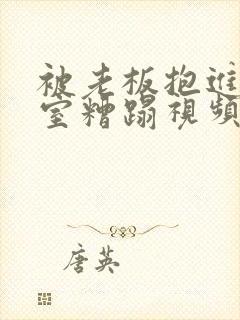 被老板抱进
室糟蹋視頻
唐英